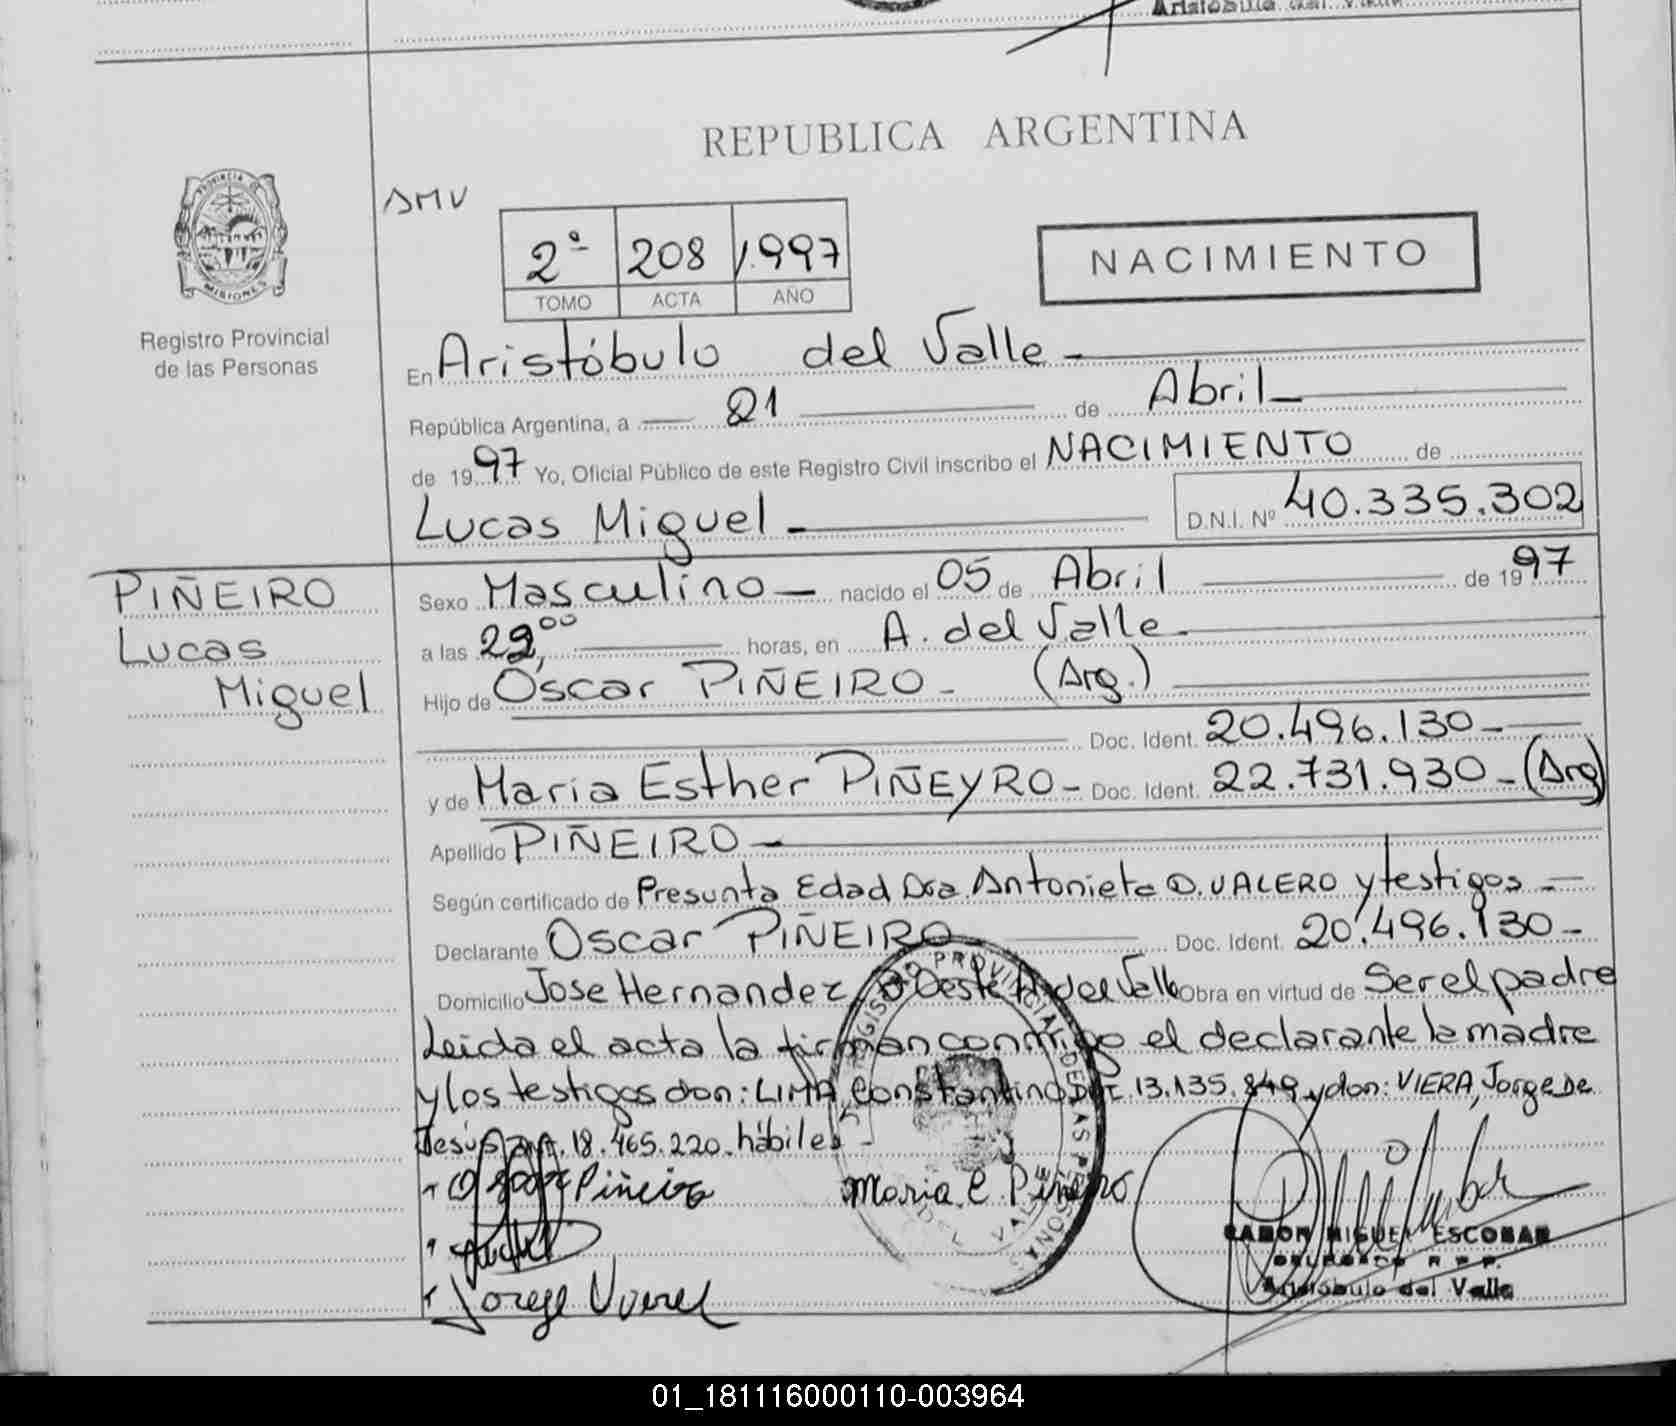 Aristóbulo del Valle
REPUBLICA ARGENTINA
PROVINCIA DE
MISIONES
Registro Provincial
de las Personas
AMV
2º 208 1.997
TOMO ACTA AÑO
NACIMIENTO
En Aristóbulo del Valle -
República Argentina, a 21 de Abril
de 1997 Yo, Oficial Público de este Registro Civil inscribo el NACIMIENTO de
Lucas Miguel - D.N.I. Nº 40.335.302
PIÑEIRO
Lucas
Miguel
Sexo Masculino - nacido el 05 de Abril de 1997
a las horas, en A. del Valle
Hijo de Oscar PIÑEIRO - (Arg.)
Doc. Ident. 20.496.130 -
y de Maria Esther PIÑEYRO - Doc. Ident. 22.731.930 - (Arg)
Apellido PIÑEIRO -
Según certificado de Presunta Edad Dra Antonieta D. VALERO y testigos -
Declarante Oscar PIÑEIRO - Doc. Ident. 20.496.130 -
Domicilio Jose Hernandez Oeste A. del Valle Obra en virtud de Ser el padre
Leida el acta la firman conmigo el declarante la madre
y los testigos don: LIMA, Constantino 13.135.849 y don: VIERA, Jorge De
Jesús 18.465.220 hábiles -
Oscar Piñeiro Maria E Piñeyro
Jorge Viera
REGISTRO PROVINCIAL DE LAS PERSONAS
DEL VALLE
RAMON MIGUEL ESCOBAR
DELEGADO R.P.P.
Aristóbulo del Valle
01_181116000110-003964